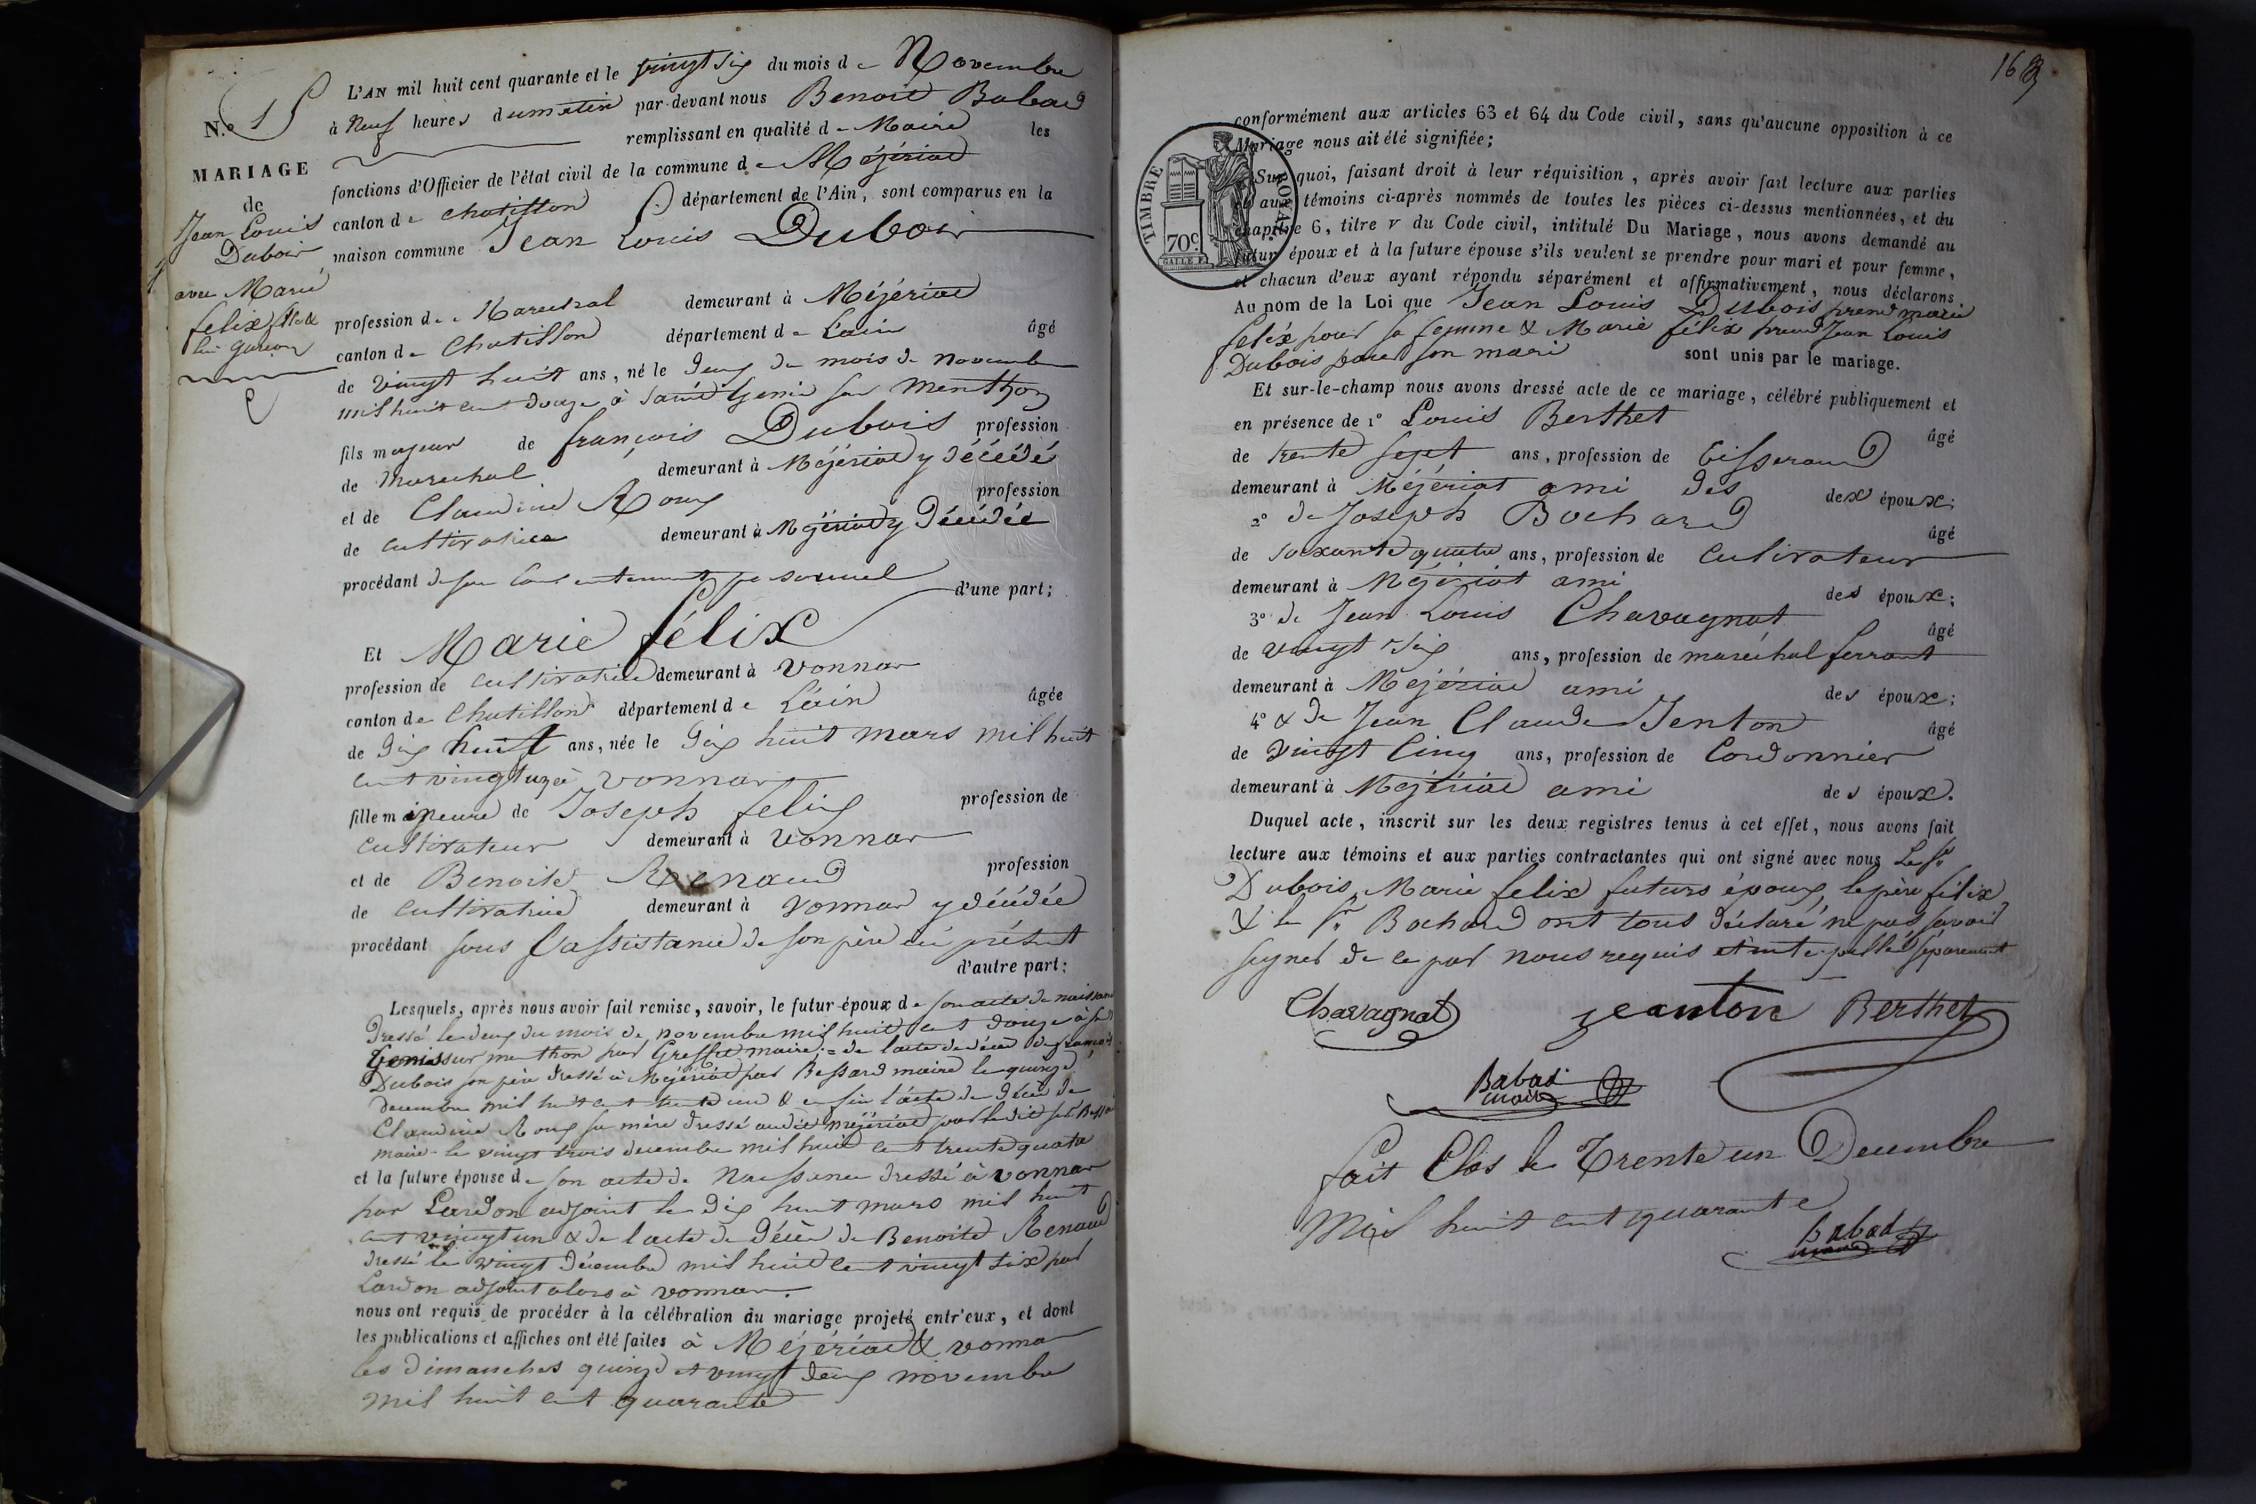 N.o 15
MARIAGE
de
Jean Louis
Dubois
avec Marie
felix fille &
lui garçon
L'AN mil huit cent quarante et le vingt six du mois de Novembre
à Neuf heures du matin par-devant nous Benoit Babad
remplissant en qualité de Maire les
fonctions d'Officier de l'état civil de la commune de Mézériat
canton de chatillon département de l'Ain, sont comparus en la
maison commune Jean Louis Dubois
profession de Marechal demeurant à Mézériat
canton de Chatillon département de L'ain âgé
de vingt huit ans, né le deux du mois de novembre
mil huit cent douze à Saint Genis sur Menthon
fils majeur de françois Dubois profession
de Marechal demeurant à Mézériat y décédé
et de Claudine Roux profession
de cultivatrice demeurant à Mézériat y décédée
procédant de son consentement personnel d'une part;
Et Marie félix
profession de cultivatrice demeurant à vonnas
canton de Chatillon département de L'ain âgée
de dix huit ans, née le dix huit mars mil huit
cent vingt un à vonnas
fille mineure de Joseph felix profession de
cultivateur demeurant à vonnas
et de Benoite Renaud profession
de cultivatrice demeurant à vonnas y décédée
procédant sous l'assistance de son père ici présent
d'autre part;
Lesquels, après nous avoir fait remise, savoir, le futur époux de son acte de naissance
dressé le deux du mois de novembre mil huit cent douze à St
Genis sur menthon par Greffet maire; = de l'acte de décès de françois
Dubois son père dressé à Mézériat par Bessard maire le quinze
decembre mil huit cent trente une & enfin l'acte de décès de
Claudine Roux sa mère dressé audit mézériat par ledit sr Bessard
maire le vingt trois decembre mil huit cent trente quatre
et la future épouse de son acte de Naissance dressé à vonnas
par Lardon adjoint le dix huit mars mil huit
cent vingt un & de l'acte de décès de Benoite Renaud
dressé le vingt décembre mil huit cent vingt six par
Lardon adjoint alors à vonnas.
nous ont requis de procéder à la célébration du mariage projeté entr'eux, et dont
les publications et affiches ont été faites à Mézériat & vonnas
les dimanches quinze et vingt deux novembre
mil huit cent quarante
conformément aux articles 63 et 64 du Code civil, sans qu'aucune opposition à ce
Mariage nous ait été signifiée;
TIMBRE ROYAL.
70c.
Sur quoi, faisant droit à leur réquisition, après avoir fait lecture aux parties
et aux témoins ci-après nommés de toutes les pièces ci-dessus mentionnées, et du
chapitre 6, titre v du Code civil, intitulé Du Mariage, nous avons demandé au
futur époux et à la future épouse s'ils veulent se prendre pour mari et pour femme,
et chacun d'eux ayant répondu séparément et affirmativement, nous déclarons.
Au nom de la Loi que Jean Louis Dubois prend marie
felix pour sa femme & Marie félix prend Jean Louis
Dubois pour son mari sont unis par le mariage.
Et sur-le-champ nous avons dressé acte de ce mariage, célébré publiquement et
en présence de 1° Louis Berthet âgé
de trente sept ans, profession de tisserand
demeurant à Mézériat ami des des époux;
2° de Joseph Bochard âgé
de soixante quatre ans, profession de cultivateur
demeurant à Mézériat ami des époux;
3° de Jean Louis Chavagnat âgé
de vingt six ans, profession de maréchal ferrant
demeurant à Mézériat ami des époux;
4° & de Jean Claude Jenton âgé
de vingt Cinq ans, profession de Cordonnier
demeurant à Mézériat ami des époux.
Duquel acte, inscrit sur les deux registres tenus à cet effet, nous avons fait
lecture aux témoins et aux parties contractantes qui ont signé avec nous Le sr
Dubois, Marie felix futurs époux, le père félix
& le Sr Bochard ont tous déclaré ne pas savoir
signer de ce par nous requis et interpellé séparement
Chavagnat jeanton Berthet
Babad
maire
fait Clos le Trente un Decembre
Mil huit cent quarante
Babad
maire